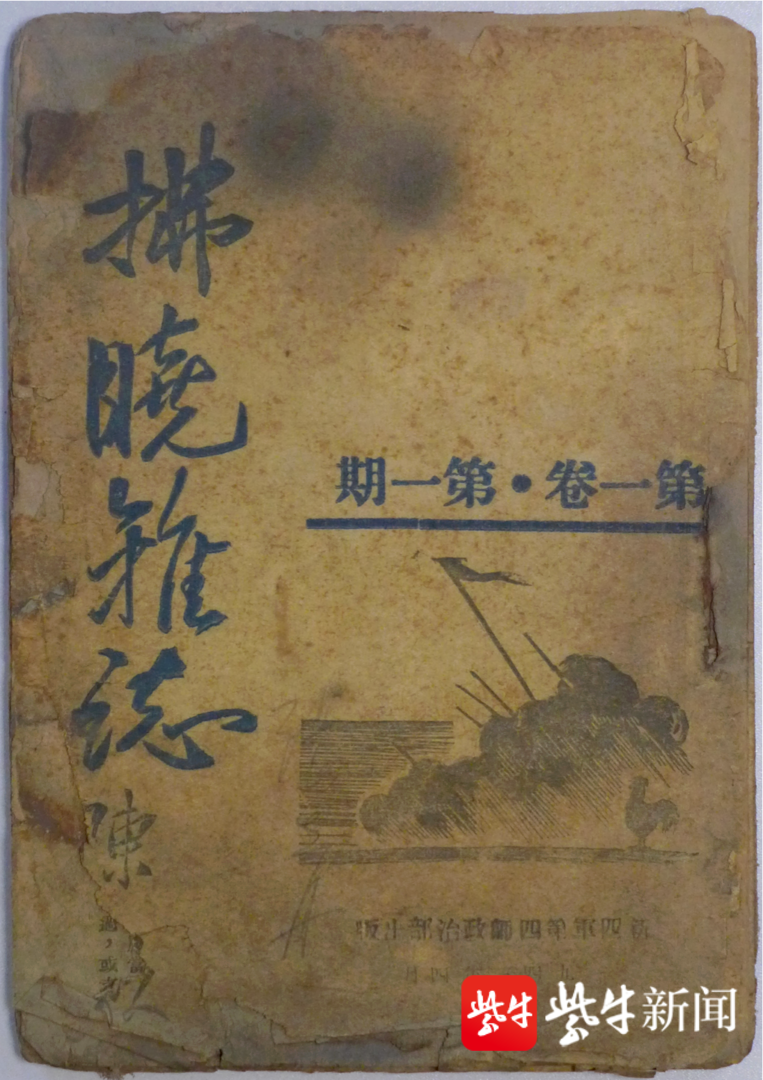 拂曉雜誌
陳
第一卷・第一期
新四軍第四師政治部出版
四月
紫牛 紫牛新闻